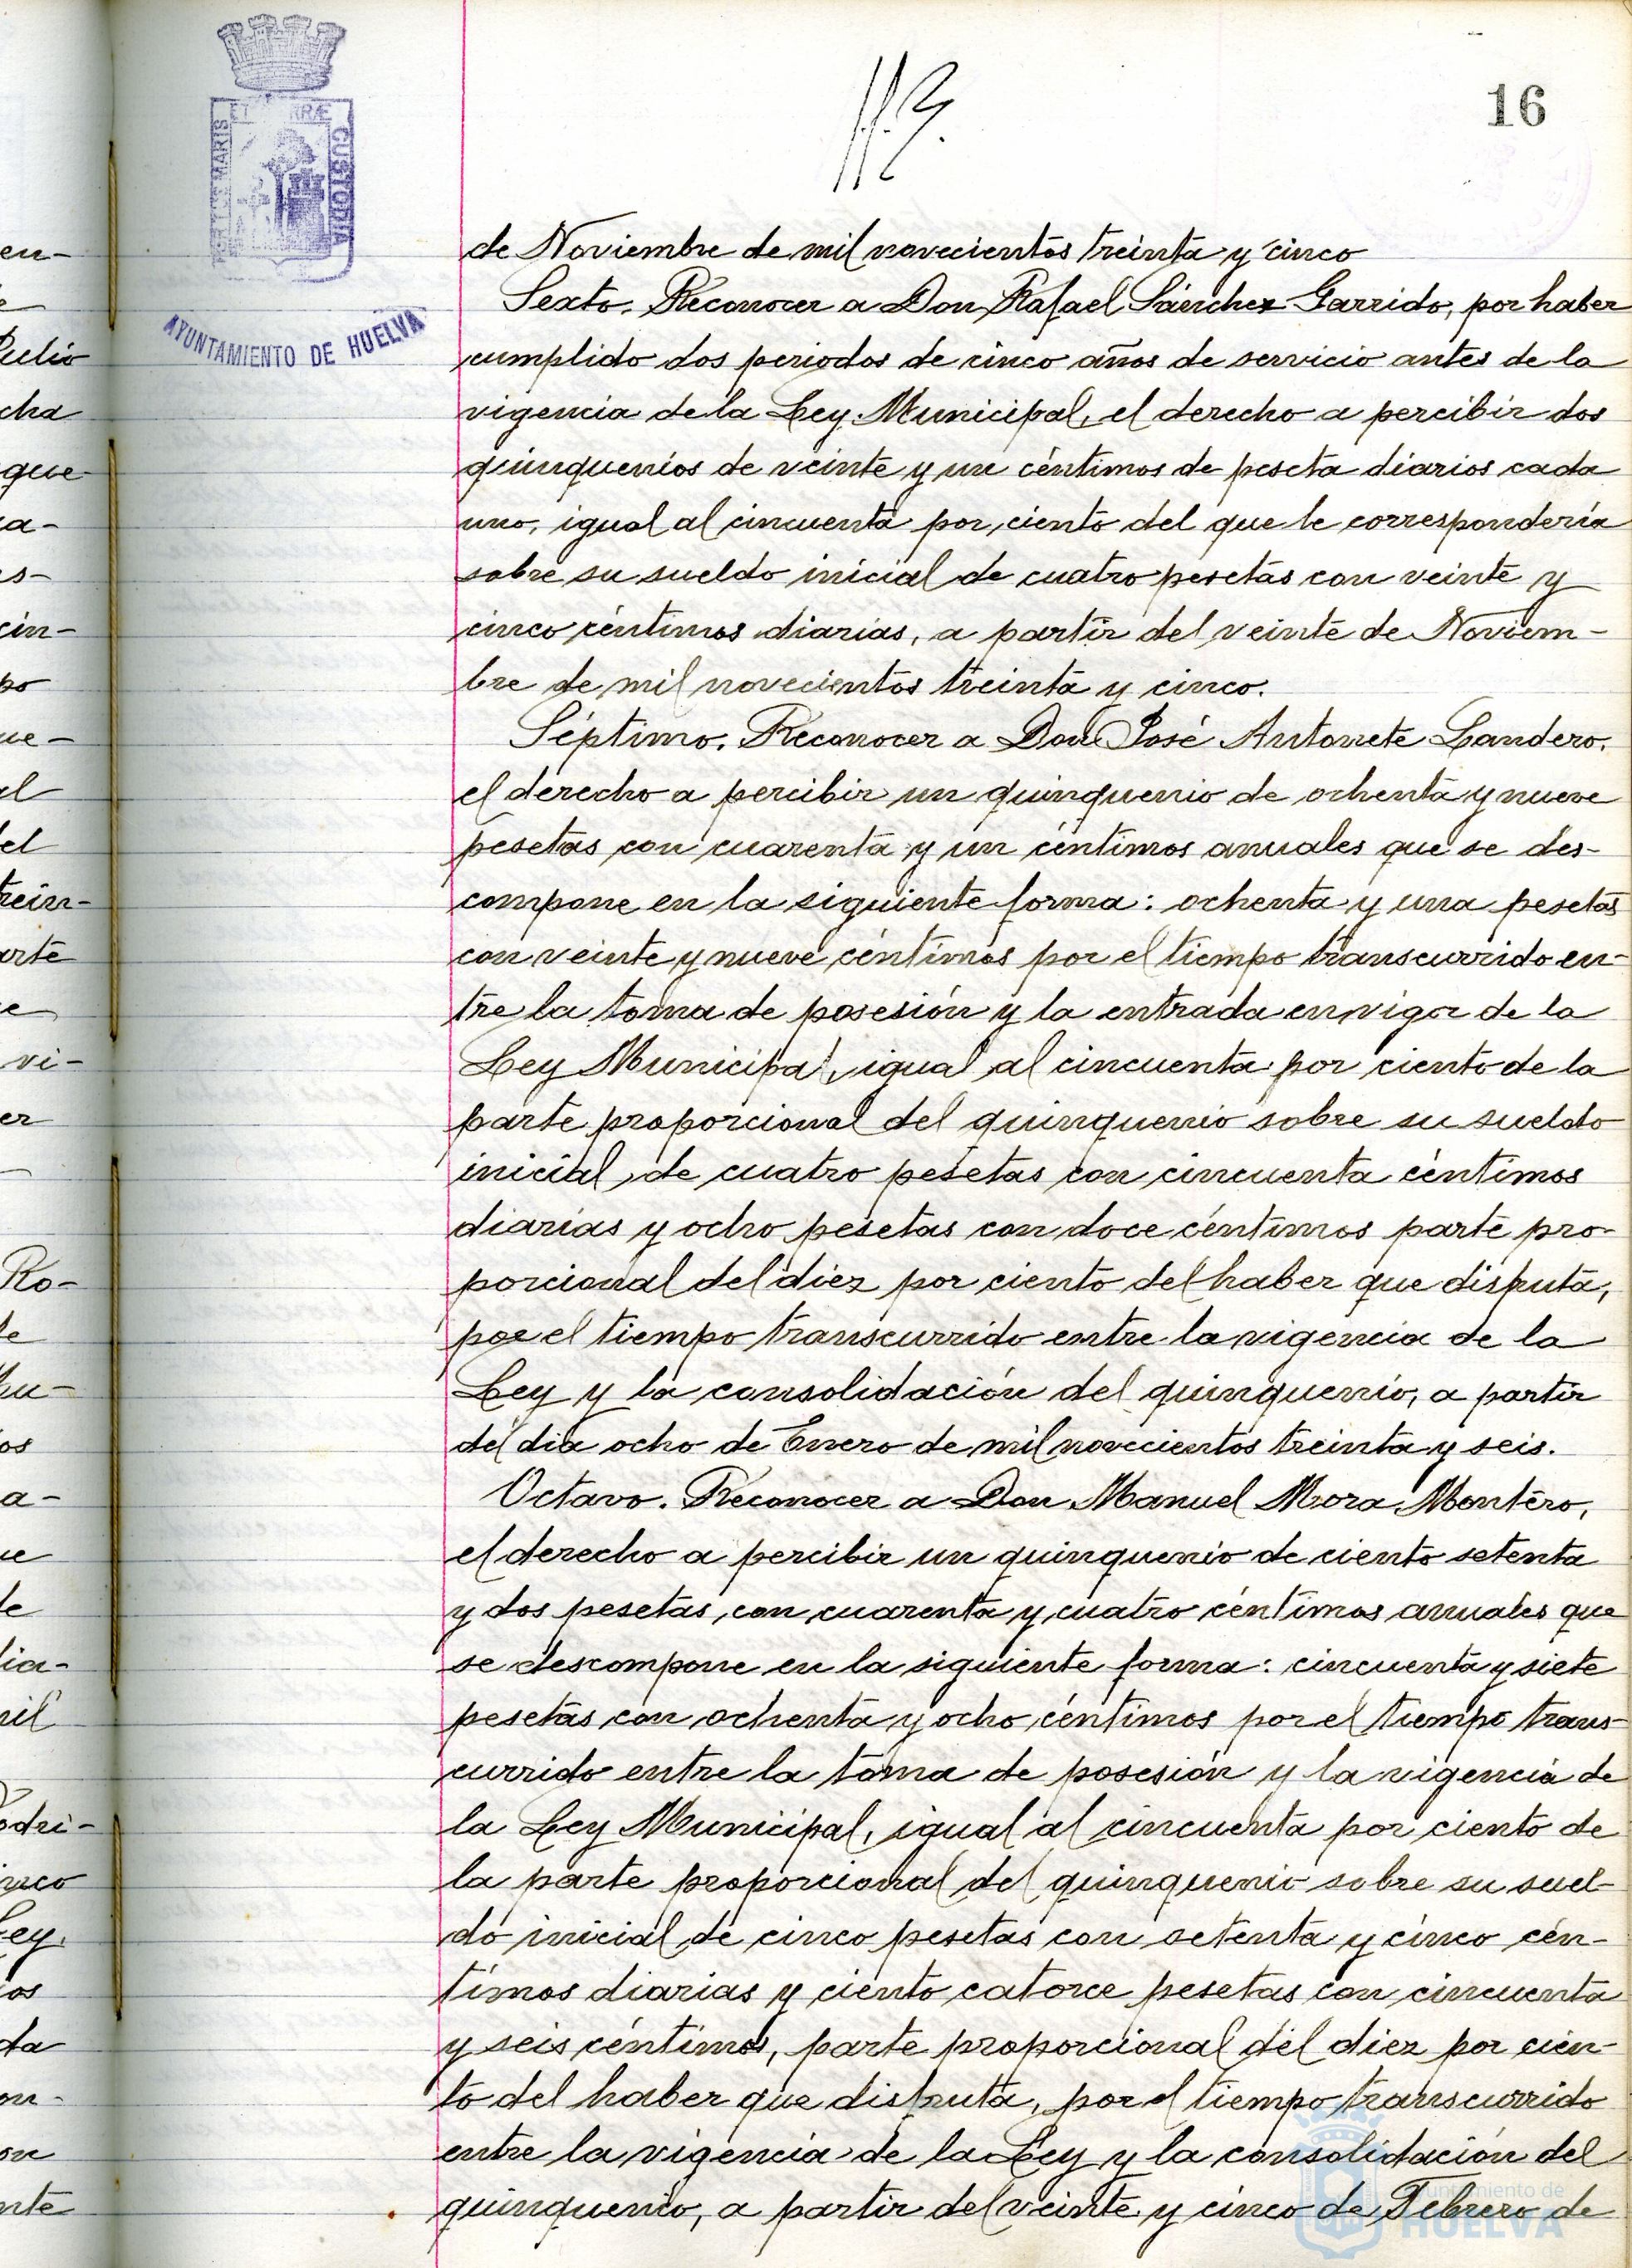 16
PORTUS MARIS ET TERRÆ CUSTODIA
AYUNTAMIENTO DE HUELVA
de Noviembre de mil novecientos treinta y cinco
Sexto. Reconocer a Don Rafael Sánchez Garrido, por haber
cumplido dos periodos de cinco años de servicio antes de la
vigencia de la Ley Municipal, el derecho a percibir dos
quinquenios de veinte y un céntimos de peseta diarios cada
uno, igual al cincuenta por ciento del que le correspondería
sobre su sueldo inicial de cuatro pesetas con veinte y
cinco céntimos diarias, a partir del veinte de Noviem-
bre de mil novecientos treinta y cinco.
Séptimo. Reconocer a Don José Antonete Landero,
el derecho a percibir un quinquenio de ochenta y nueve
pesetas con cuarenta y un céntimos anuales que se des-
compone en la siguiente forma: ochenta y una pesetas
con veinte y nueve céntimos por el tiempo transcurrido en-
tre la toma de posesión y la entrada en vigor de la
Ley Municipal, igual al cincuenta por ciento de la
parte proporcional del quinquenio sobre su sueldo
inicial de cuatro pesetas con cincuenta céntimos
diarias y ocho pesetas con doce céntimos parte pro-
porcional del diez por ciento del haber que disfruta,
por el tiempo transcurrido entre la vigencia de la
Ley y la consolidación del quinquenio, a partir
del dia ocho de Enero de mil novecientos treinta y seis.
Octavo. Reconocer a Don Manuel Mora Montero,
el derecho a percibir un quinquenio de ciento setenta
y dos pesetas, con cuarenta y cuatro céntimos anuales que
se descompone en la siguiente forma: cincuenta y siete
pesetas con ochenta y ocho céntimos por el tiempo trans-
currido entre la toma de posesión y la vigencia de
la Ley Municipal, igual al cincuenta por ciento de
la parte proporcional del quinquenio sobre su suel-
do inicial de cinco pesetas con setenta y cinco cén-
timos diarias y ciento catorce pesetas con cincuenta
y seis céntimos, parte proporcional del diez por cien-
to del haber que disfruta, por el tiempo transcurrido
entre la vigencia de la Ley y la consolidación del
quinquenio, a partir del veinte y cinco de Febrero de
Ayuntamiento de
HUELVA